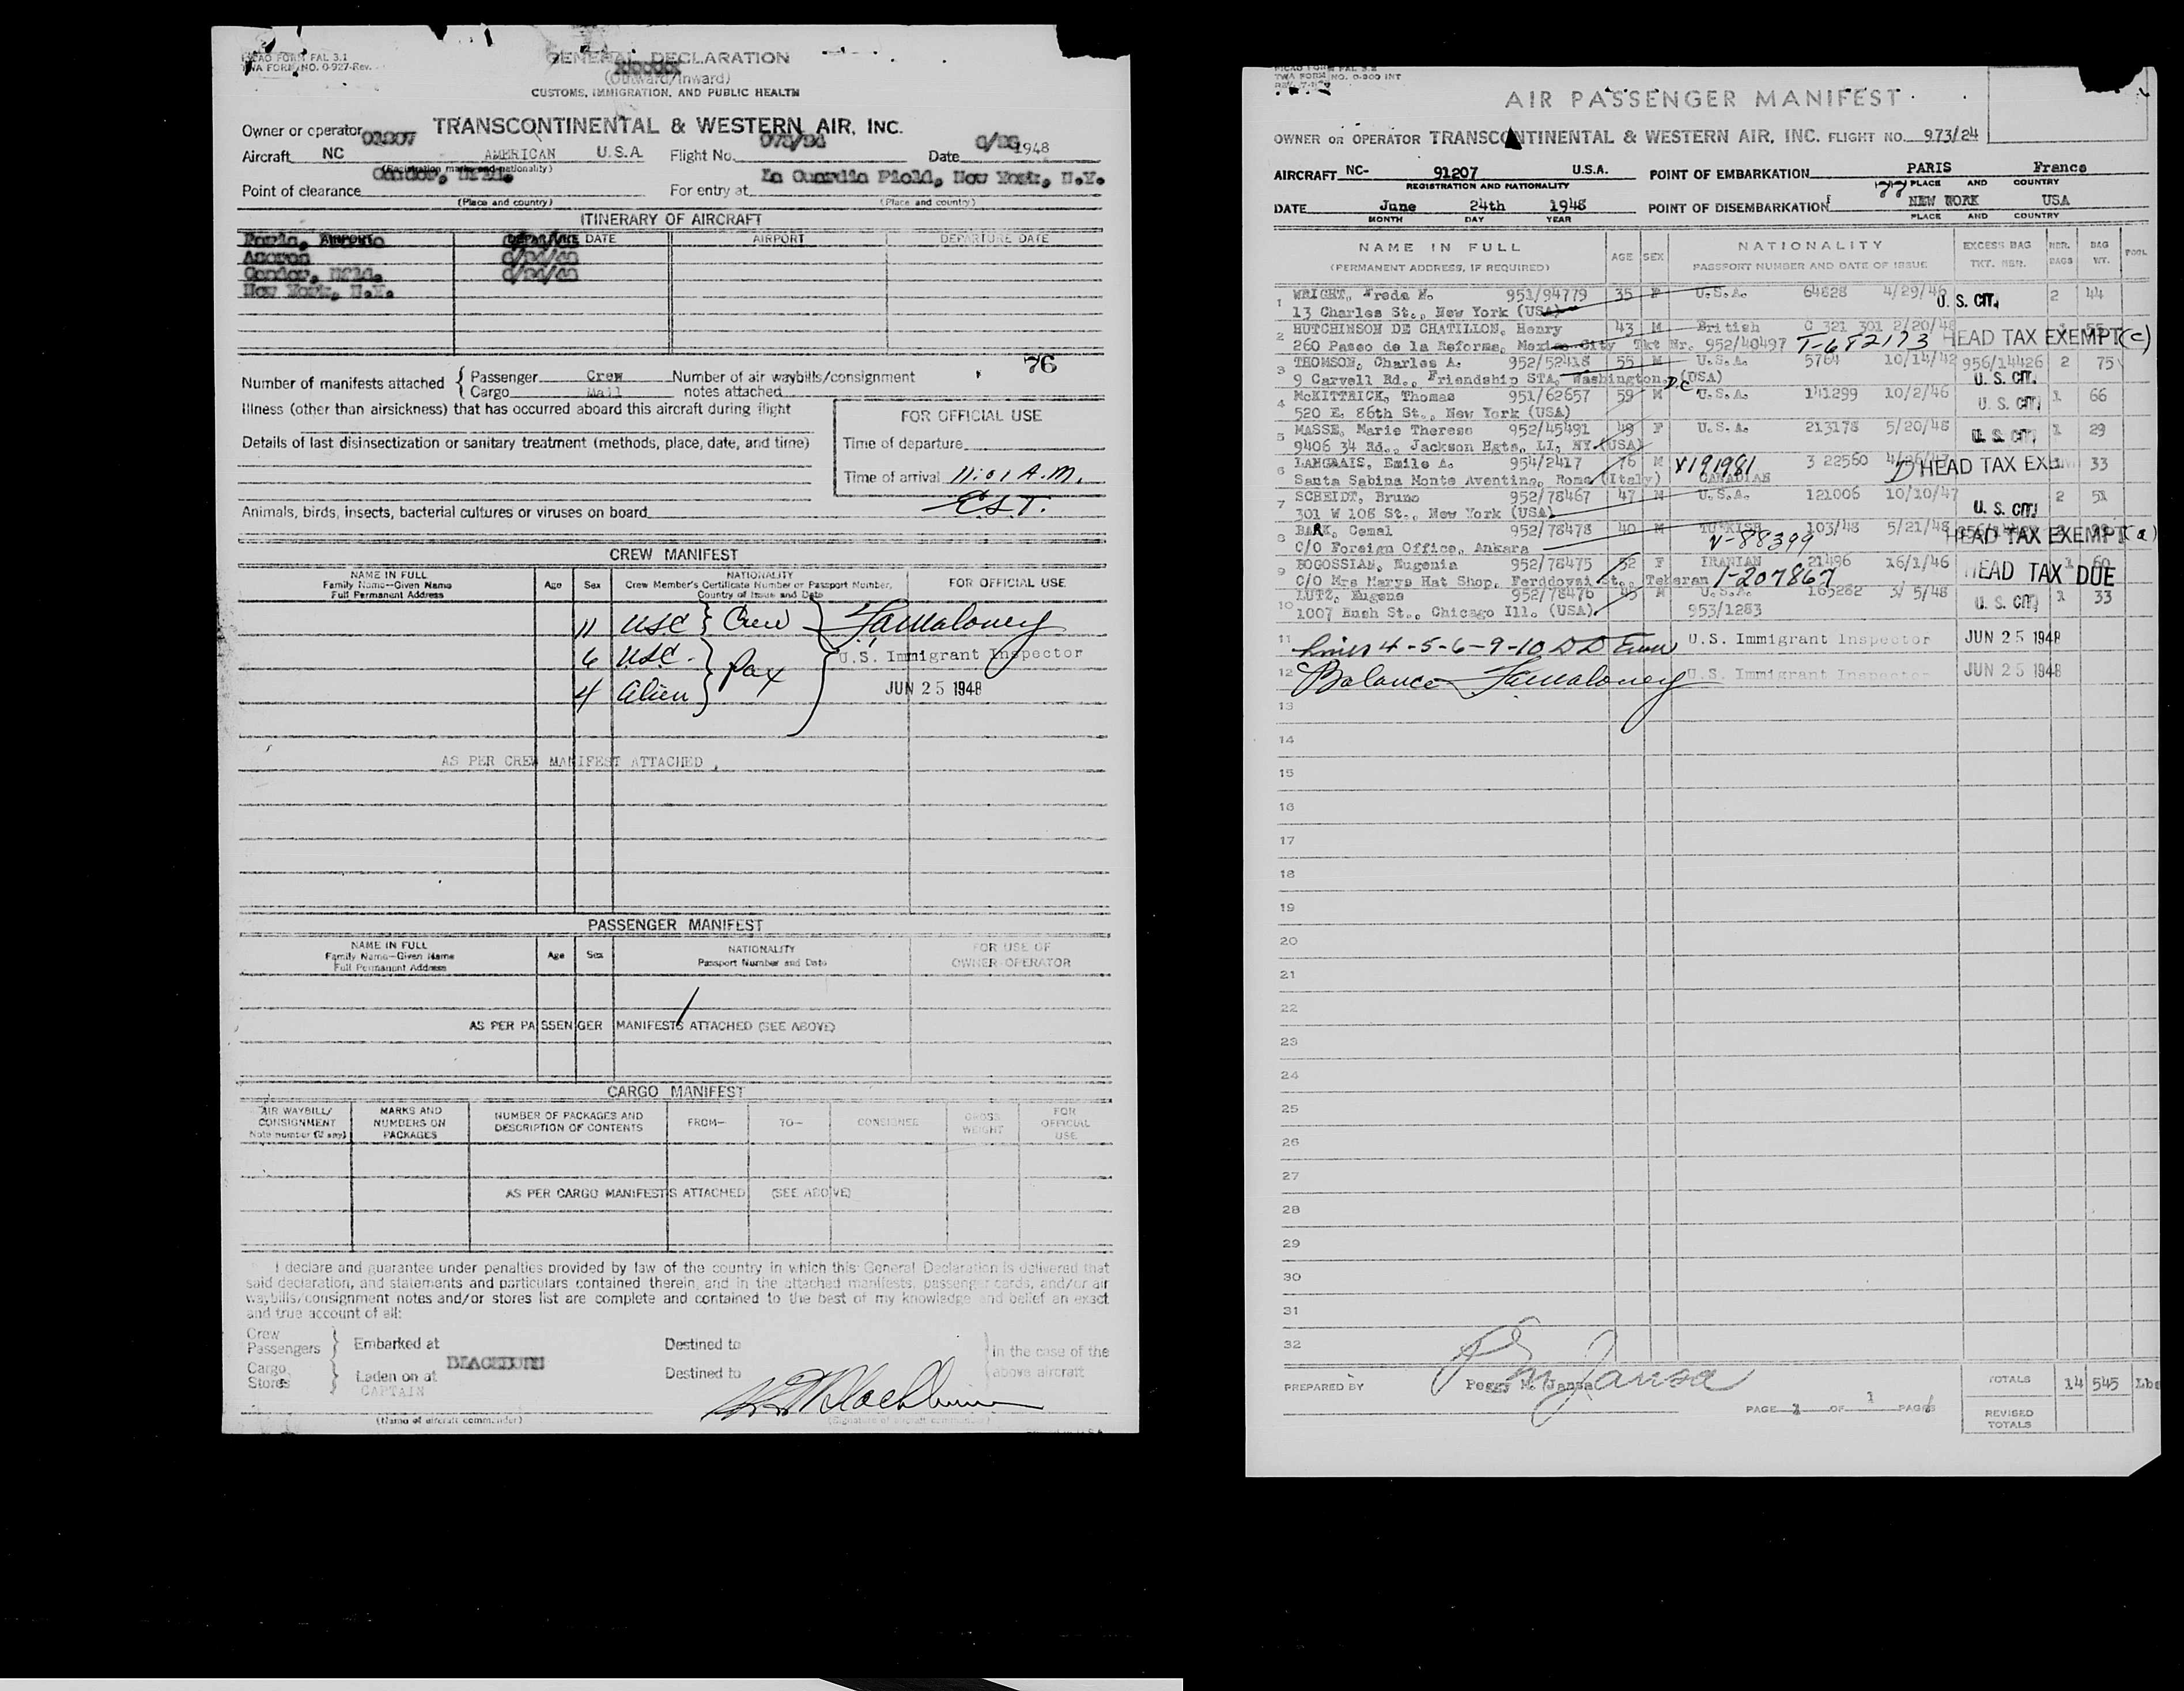 ICAO FORM FAL 3.1
TWA FORM NO. 0-927-Rev.
GENERAL DECLARATION
(Outward/Inward)
CUSTOMS, IMMIGRATION, AND PUBLIC HEALTH
Owner or operator TRANSCONTINENTAL & WESTERN AIR, INC.
Aircraft NC 91207 AMERICAN U.S.A. Flight No. 973/24 Date 1948
(Registration marks and nationality)
Point of clearance Gander, Nfld. For entry at La Guardia Field, New York, N.Y.
(Place and country) (Place and country)
ITINERARY OF AIRCRAFT
AIRPORT DEPARTURE DATE AIRPORT DEPARTURE DATE
Paris,
Azores 6/24/48
Gander, Nfld. 6/24/48
New York, N.Y.
76
Number of manifests attached { Passenger Crew Number of air waybills/consignment
Cargo Mail notes attached
Illness (other than airsickness) that has occurred aboard this aircraft during flight
FOR OFFICIAL USE
Details of last disinsectization or sanitary treatment (methods, place, date, and time)
Time of departure
Time of arrival 11:01 A.M.
E.S.T.
Animals, birds, insects, bacterial cultures or viruses on board
CREW MANIFEST
NAME IN FULL
Family Name—Given Name
Full Permanent Address
Age Sex
NATIONALITY
Crew Member's Certificate Number or Passport Number,
Country of Issue and Date
FOR OFFICIAL USE
11 USC } Crew
6 USC } Pax U.S. Immigrant Inspector
4 Alien JUN 25 1948
AS PER CREW MANIFEST ATTACHED
PASSENGER MANIFEST
NAME IN FULL
Family Name—Given Name
Full Permanent Address
Age Sex
NATIONALITY
Passport Number and Date
FOR USE OF
OWNER-OPERATOR
AS PER PASSENGER MANIFESTS ATTACHED (SEE ABOVE)
CARGO MANIFEST
AIR WAYBILL/
CONSIGNMENT
Note number (if any)
MARKS AND
NUMBERS ON
PACKAGES
NUMBER OF PACKAGES AND
DESCRIPTION OF CONTENTS
FROM— TO— CONSIGNEE
GROSS
WEIGHT
FOR
OFFICIAL
USE
AS PER CARGO MANIFESTS ATTACHED (SEE ABOVE)
I declare and guarantee under penalties provided by law of the country in which this General Declaration is delivered that
said declaration, and statements and particulars contained therein, and in the attached manifests, passenger cards, and/or air
waybills/consignment notes and/or stores list are complete and contained to the best of my knowledge and belief an exact
and true account of all:
Crew
Passengers } Embarked at Destined to In the case of the
Cargo
Stores } Laden on at Destined to above aircraft
BLACKBURN
CAPTAIN
(Name of aircraft commander) (Signature of aircraft commander)
TWA FORM NO. 0-300 INT
AIR PASSENGER MANIFEST
OWNER OR OPERATOR TRANSCONTINENTAL & WESTERN AIR, INC. FLIGHT NO. 973/24
AIRCRAFT NC- 91207 U.S.A. POINT OF EMBARKATION PARIS France
REGISTRATION AND NATIONALITY PLACE AND COUNTRY
DATE June 24th 1948 POINT OF DISEMBARKATION NEW YORK USA
MONTH DAY YEAR PLACE AND COUNTRY
NAME IN FULL
(PERMANENT ADDRESS, IF REQUIRED)
AGE SEX
NATIONALITY
PASSPORT NUMBER AND DATE OF ISSUE
EXCESS BAG
TKT. NBR.
NBR.
BAGS
BAG
WT.
POOL
1 WRIGHT, Freda N. 951/94779 35 F U.S.A. 64828 4/29/46 U. S. CIT. 2 44
13 Charles St., New York (USA)
2 HUTCHINSON DE CHATILLON, Henry 43 M British C 321 301 2/20/48 HEAD TAX EXEMPT (c)
260 Paseo de la Reforma, Mexico City Tkt Nr. 952/40497 T-682173
3 THOMSON, Charles A. 952/52418 55 M U.S.A. 5764 10/14/42 956/14426 2 75
9 Carvell Rd., Friendship STA, Washington, DC (USA) U. S. CIT.
4 McKITTRICK, Thomas 951/62657 59 M U.S.A. 141299 10/2/46 U. S. CIT. 1 66
520 E. 86th St., New York (USA)
5 MASSE, Marie Therese 952/45491 49 F U.S.A. 213178 5/20/48 U. S. CIT. 1 29
9406 34 Rd., Jackson Hgts, LI, NY (USA)
6 LANGLAIS, Emile A. 954/2417 76 M V191981 3 22560 HEAD TAX EXEM 33
Santa Sabina Monte Aventino, Rome (Italy) CANADIAN
7 SCHEIDT, Bruno 952/78467 47 M U.S.A. 121006 10/10/47 U. S. CIT. 2 51
301 W 108 St., New York (USA)
8 BARK, Cemal 952/78478 40 M TURKISH 103/48 5/21/48 HEAD TAX EXEMPT (a)
C/O Foreign Office, Ankara V-88399
9 BOGOSSIAN, Eugenia 952/78475 52 F IRANIAN 21496 16/1/46 HEAD TAX DUE 1 60
C/O Mrs Marys Hat Shop, Ferddovsi St., Teheran I-207867
10 LUTZ, Eugene 952/78476 45 M U.S.A. 165282 3/ 5/48 U. S. CIT. 1 33
1007 Rush St., Chicago Ill. (USA) 953/1283
11 Lines 4-5-6-9-10 U.S. Immigrant Inspector JUN 25 1948
12 Balance U.S. Immigrant Inspector JUN 25 1948
13
14
15
16
17
18
19
20
21
22
23
24
25
26
27
28
29
30
31
32
PREPARED BY Peggy M. Jansa
TOTALS 14 545 Lbs
PAGE 1 OF 1 PAGES
REVISED
TOTALS